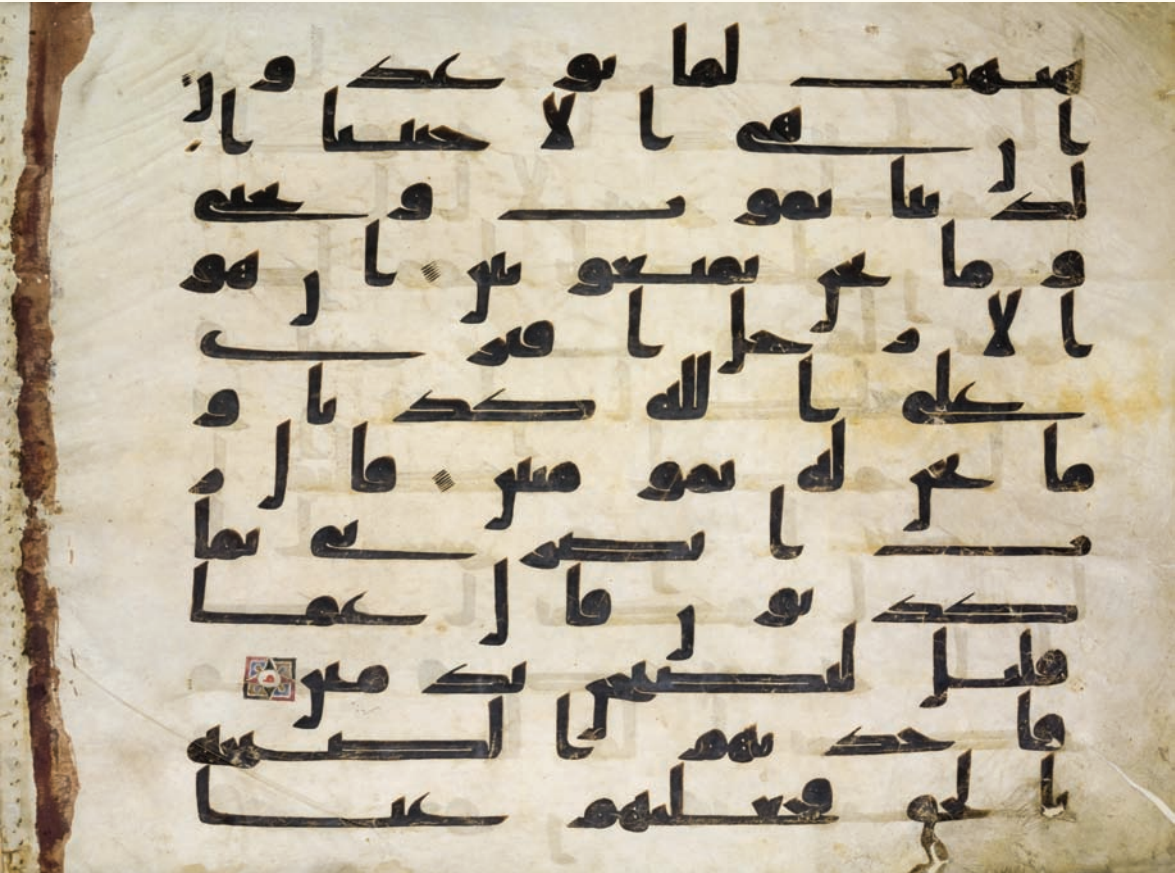 هيهت لما توعدون
ان هي الا حيتنا ا
لدنيا نموت ونحيى
وما نحن بمبعوثين ان هو
الا رجل افترى
على الله كذبا و
ما نحن له بمومنين قال ر
ب انصرني بما
كذبون قال عما
قليل ليصبحن ندمين
فاخذتهم الصيحه
بالحق فجعلنهم غثا